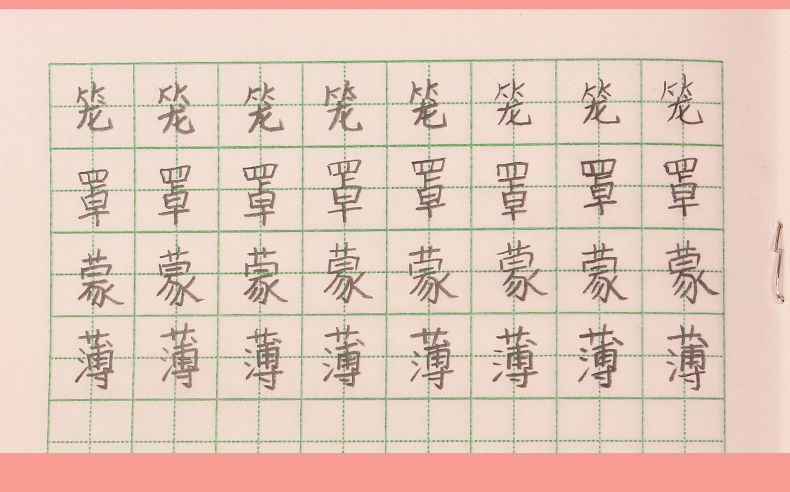 笼笼笼笼笼笼笼笼
罩罩罩罩罩罩罩罩
蒙蒙蒙蒙蒙蒙蒙蒙
薄薄薄薄薄薄薄薄